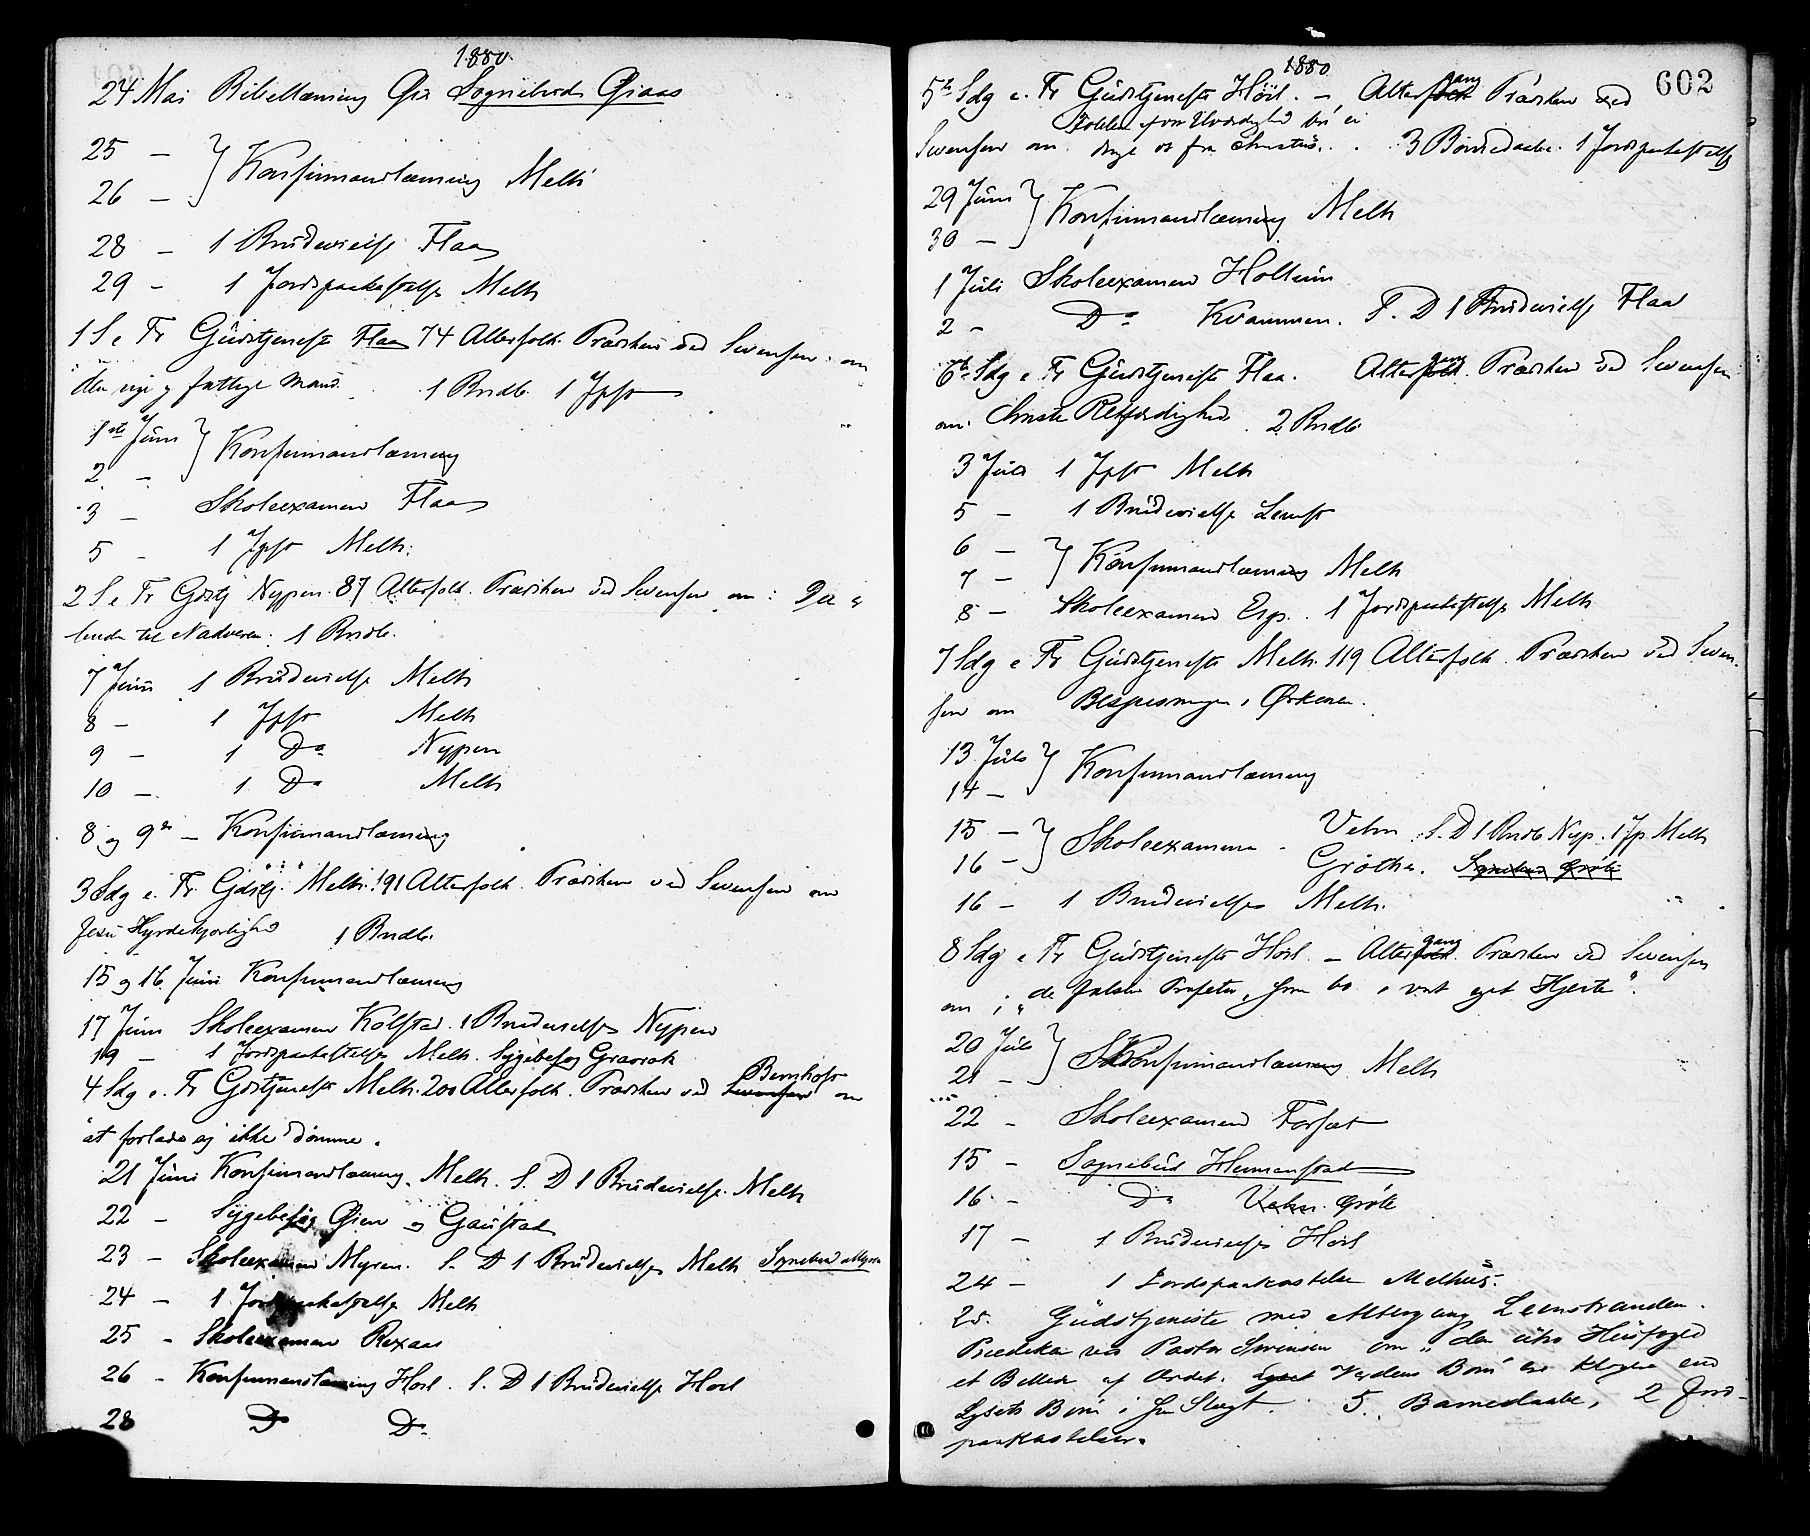 1880.
24 Mai Bibellæsning Øia Sognebud Øiaas
25 —
} Konfirmandlæsning Melh
26 —
28 — 1 Brudevielse Flaa
29 - 1 Jordspaakastelse Melh
1 S e Tr Gudstjeneste Flaa 74 Alterfolk. Prædiken ved Svensen om
den rige og fattige Mand. 1 Bndb. 1 Jpst
1ste Juni
} Konfirmandlæsning
2 -
3 — Skoleexamen Flaa
5 - 1 Jpst Melh.
2 S e Tr Gdstj Nypen. 87 Alterfolk. Prædiken ved Svensen om:
til Nadveren. 1 Bndb.
7 Juni 1 Brudevielse Melh
8 - 1 Jpst Melh
9 - 1 Do Nypen
10 - 1 Do Melh
8 og 9de — Konfirmandlæsning
3 Sdg e. Tr. Gdstj. Melh. 191 Alterfolk. Prædiken ved Svensen om
Jesu Hyrdekjærlighed 1 Bndb.
15 og 16 Juni Konfirmandlæsning
17 Juni Skoleexamen Kolstad. 1 Brudevielse Nypen
19 — 1 Jordspaakastelse Melh. Sygebesøg Gravrok
4 Sdg e. Tr. Gdstjeneste Melh. 200 Alterfolk. Prædiken ved Svensen Bernhoft om
at forlade og ikke dømme.
21 Juni Konfirmandlæsning. Melh. S. D 1 Brudevielse. Melh
22 — Sygebesøg Øien og Gaustad
23 — Skoleexamen Myren. S. D 1 Brudevielse Melh Sognebud Myren
24 — 1 Jordspaakastelse Melh
25 - Skoleexamen Rexaas
26 - Konfirmandlæsning Horl. S. D 1 Brudevielse Horl
28 Do Do
1880
602
5te Sdg e. Tr Gudstjeneste Höil. — Alterfolk gang Prædiken ved
Følelsen af vor Uværdighed bør ei
Svensen om. drage os fra Christus. 3 Barnedaabe. 1 Jordspaakastelse
29 Juni
} Konfirmandlæsning Melh
30 —
1 Juli Skoleexamen Holtum
2 - Do Kvammen. S. D 1 Brudevielse Flaa
6te Sdg e Tr Gudstjeneste Flaa. Alterfolk gang. Prædiken ved Svensen
om. Christi Retfærdighed. 2 Bndb.
3 Juli 1 Jpst Melh
5 - 1 Brudevielse Leinst
6 —
} Konfirmandlæsning Melh
7 —
8 — Skoleexamen Esp. 1 Jordspaakastelse Melh
7 Sdg e Tr Gudstjeneste Melh. 119 Alterfolk. Prædiken ved Sven-
sen om Bespisningen i Ørkenen.
13 Juli
} Konfirmandlæsning
14 —
15 — Vehn. S. D 1 Bndb Nyp. 1 Jp. Melh
} Skoleexamen
16 — Grøthe. Sognebud Grøte
16 — 1 Brudevielse Melh.
8 Sdg e Tr Gudstjeneste Horl. — Alterfolk gang. Prædiken ved Svensen
om; "de falske Profeter, som bo i vort eget Hjerte".
20 Juli
} Konfirmandlæsning Melh
21 —
22 - Skoleexamen Forset
15 - Sognebud Hermanstad
16 - Do Vehn. Grøte
17 — 1 Brudevielse Horl
24 — 1 Jordspaakastelse Melhus.
25. Gudstjeneste med Altergang Leenstranden.
Prædiken ved Pastor Svensen om "den utro Husfoged
et Billede af Ordet: Verdens Børn er klogere end
Lysets Børn i sin Slægt. 5 Barnedaabe, 2 Jord-
paakastelser.